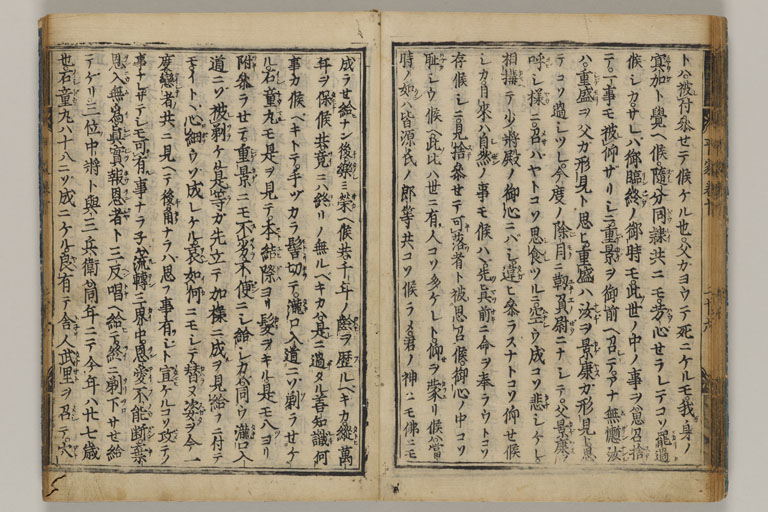 平家巻十
二十六
ト公被付參セテ候ケル也父カヨウテ死ニケルモ我身ノ
冥加ト覺ヘ候随分同隷共ニモ芳心セラレテコソ罷過
候シカサレバ御臨終ノ御時モ此世ノ中ノ事ヲ忽召捨
テ一事モ被仰サリシニ重景ヲ御前ヘ召テアナ無慚汝
ハ重盛ヲ父カ形見ト思ヒ重盛ハ汝ヲ景康カ形見ト思
テコソ過シツレ今度ノ除目ニ靱負尉ニナシテ父景康ヲ
呼シ様ニ召ハヤトコソ思食ツルニ空ウ成コソ悲シケレ
相構テ少將殿ノ御心ニバシ違ヒ參ラスナトコソ仰セ候
シカ自來ハ自然ノ事モ候ハヽ先眞前ニ命ヲ奉ラウトコソ
存候シニ見捨參セテ可落者ト被思召候御心ノ中コソ
恥シウ候ヘ此比ハ世ニ有人コソ多ケレト仰ヲ蒙リ候當
時ノ如ハ皆源氏ノ郎等共コソ候ラメ君ノ神ニモ佛ニモ
成ラセ給ナン後樂ミ榮ヘ候共千年ノ齢ヲ歴ルベキカ縱萬
年ヲ保候共竟ニハ終リノ無ルベキカ是ニ過タル善知識何
事カ候ベキトテ手ヅカラ髻切テ瀧口入道ニソ剃ラセケ
ル石童丸モ是ヲ見テ本結際ヨリ髪ヲキル是モ八ヨリ
附參ラセテ重景ニモ不劣不便ニシ給シカハ同ウ瀧口入
道ニソ被剃ケル是等カ先立テ加樣ニ成ヲ見給ニ付テ
モイトヽ心細ウソ成レケル哀如何ニモシテ替ヌ姿ヲ今一
度戀者共ニ見ヘテ後角ナラハ思フ事有シト宣ケルコソ攻テノ
事ナレサテシモ可有事ナラ子ハ流轉三界中恩愛不能断棄
恩入無爲真實報恩者ト三反唱ヘ給テ終ニ剃下サセ給
テケリ三位中將ト與三兵衛同年ニテ今年ハ廿七歳
也石童丸ハ十八ニソ成ニケル良有テ舎人武里ヲ召テ穴